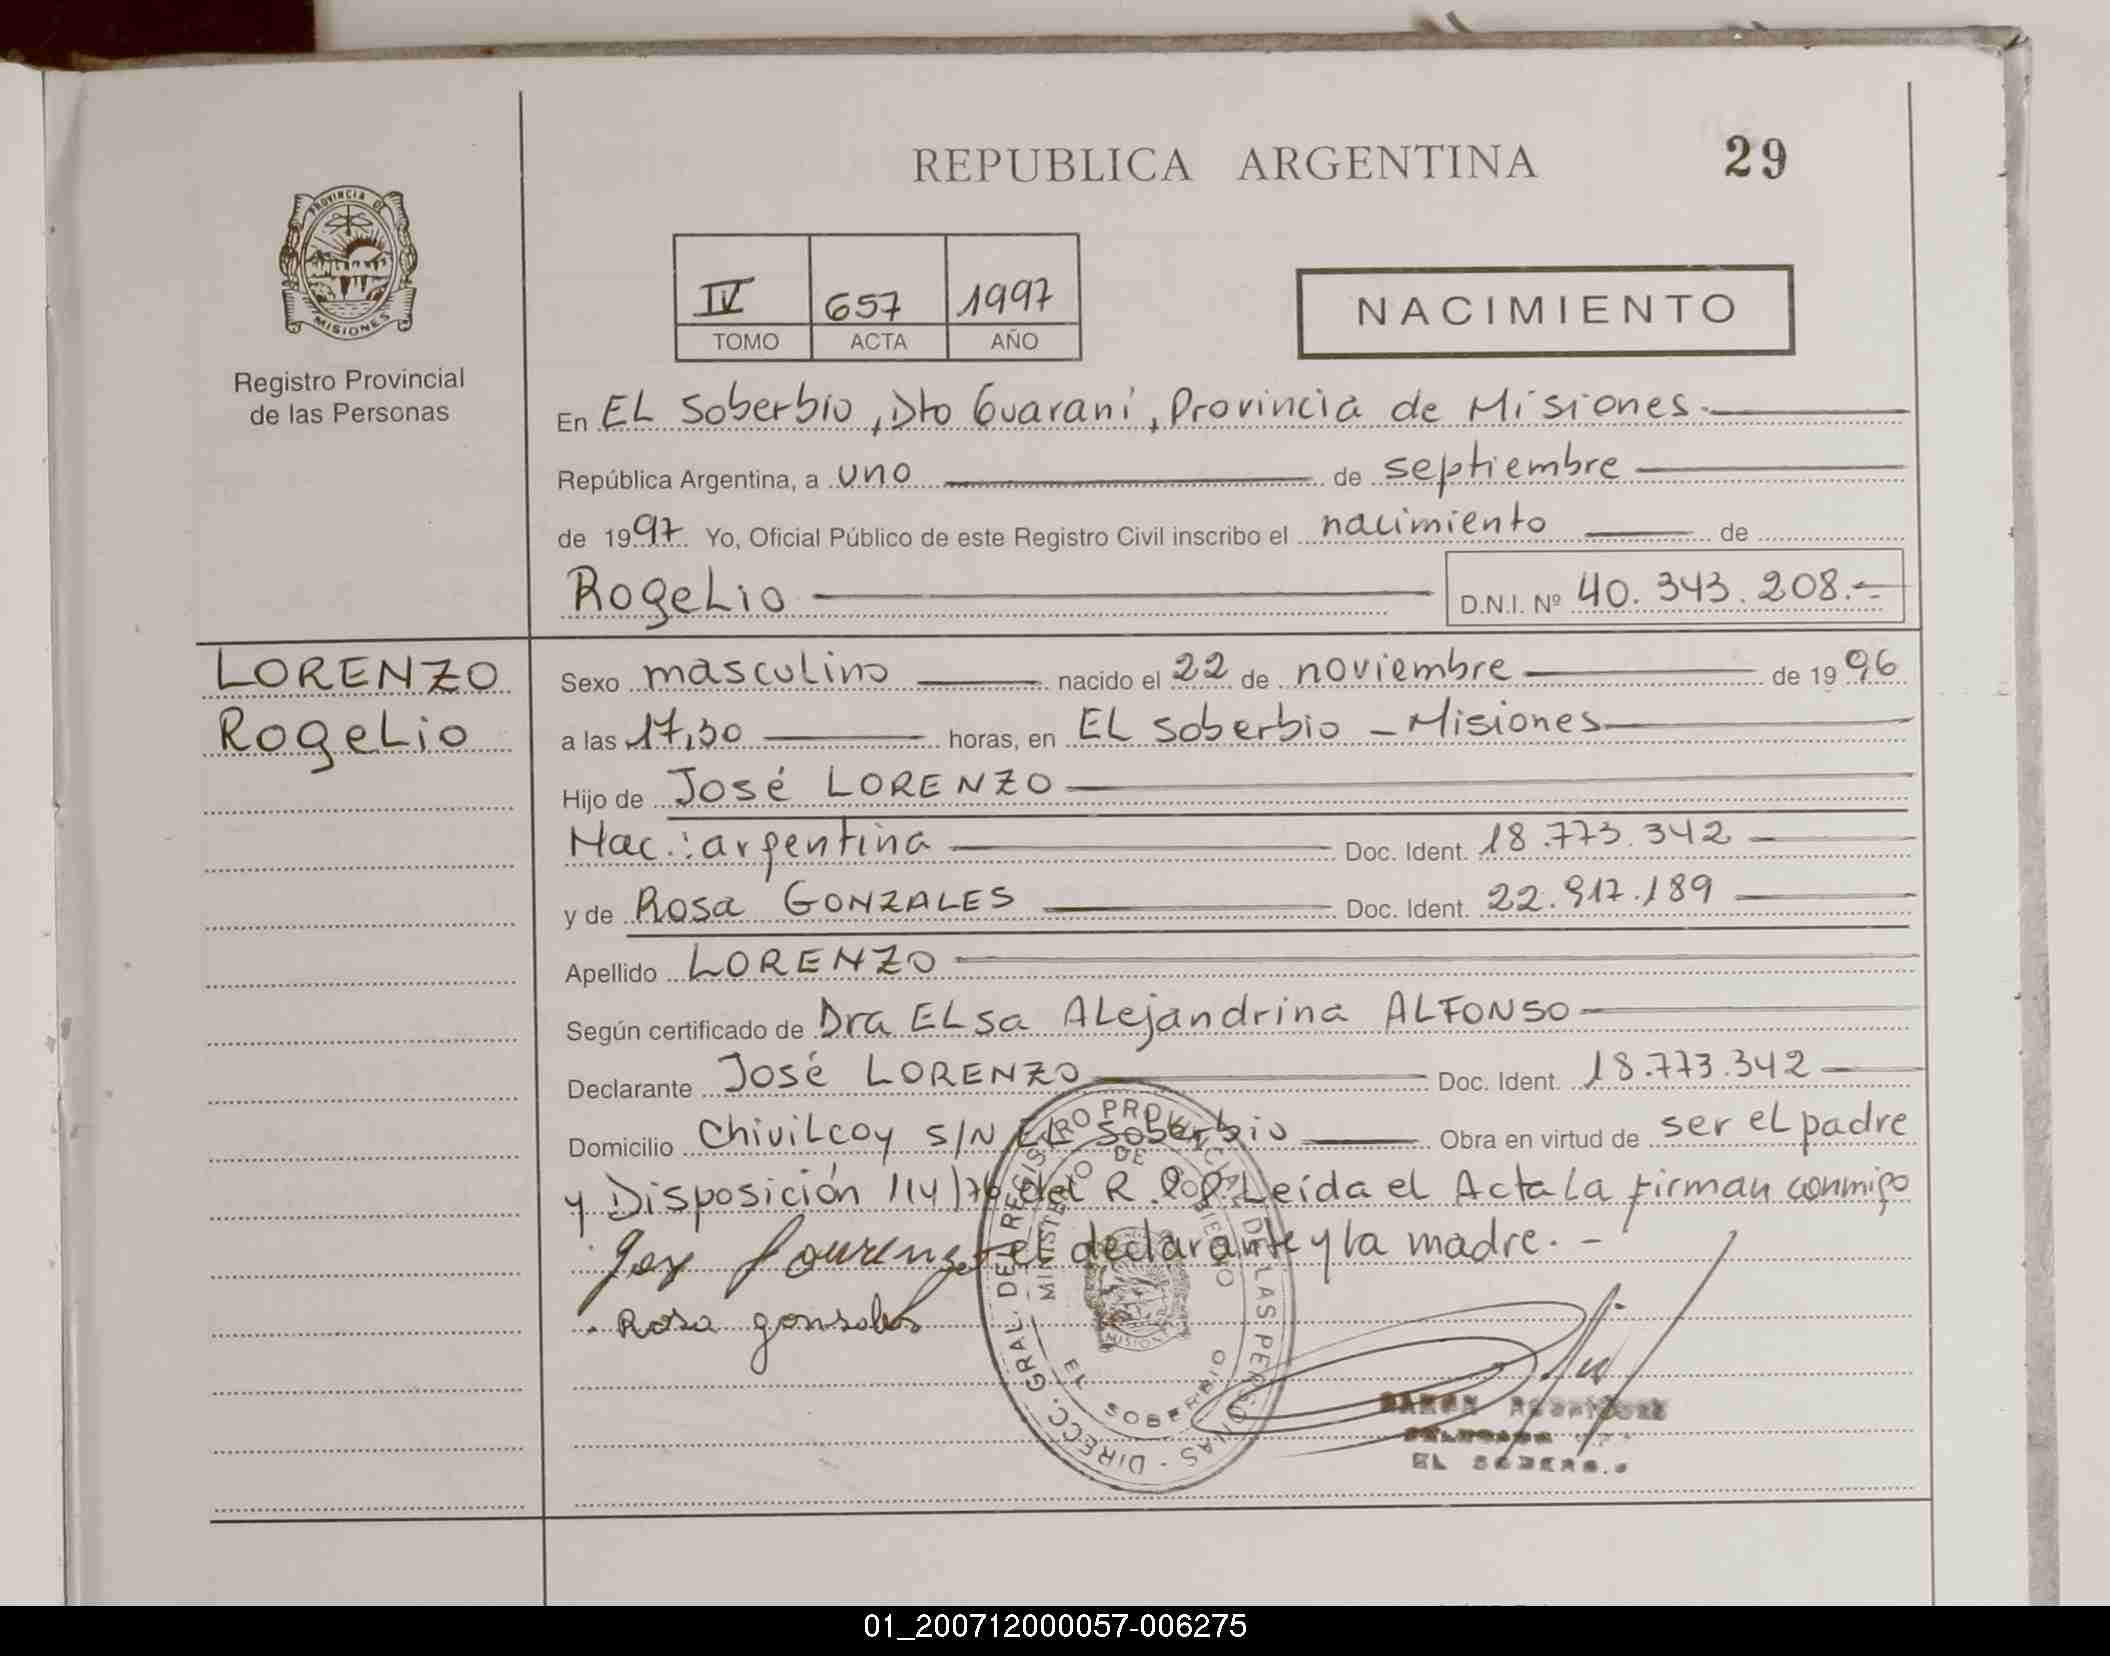 REPUBLICA ARGENTINA
29
PROVINCIA DE
MISIONES
Registro Provincial
de las Personas
IV 657 1997
TOMO ACTA AÑO
NACIMIENTO
En EL Soberbio, Dto Guaraní, Provincia de Misiones.
República Argentina, a uno de septiembre
de 1997. Yo, Oficial Público de este Registro Civil inscribo el nacimiento de
RogeLio D.N.I. Nº 40.343.208.-
LORENZO
RogeLio
Sexo masculino nacido el 22 de noviembre de 1996
a las 17,30 horas, en EL Soberbio - Misiones
Hijo de José LORENZO
Nac.: argentina Doc. Ident. 18.773.342
y de Rosa GONZALES Doc. Ident. 22.917.189
Apellido LORENZO
Según certificado de Dra ELsa ALejandrina ALFONSO
Declarante José LORENZO Doc. Ident. 18.773.342
Domicilio ChiviLcoy S/N EL Soberbio Obra en virtud de ser eL padre
y Disposición 114/76 del R.P.P. Leída el Acta La firman conmigo
el declarante y la madre. -
Rosa gonsales
DIRECC. GRAL. DEL REGISTRO PROVINCIAL DE LAS PERSONAS -
MINISTERIO DE GOBIERNO
MISIONES
EL SOBERBIO
EL SOBERBIO
01_200712000057-006275